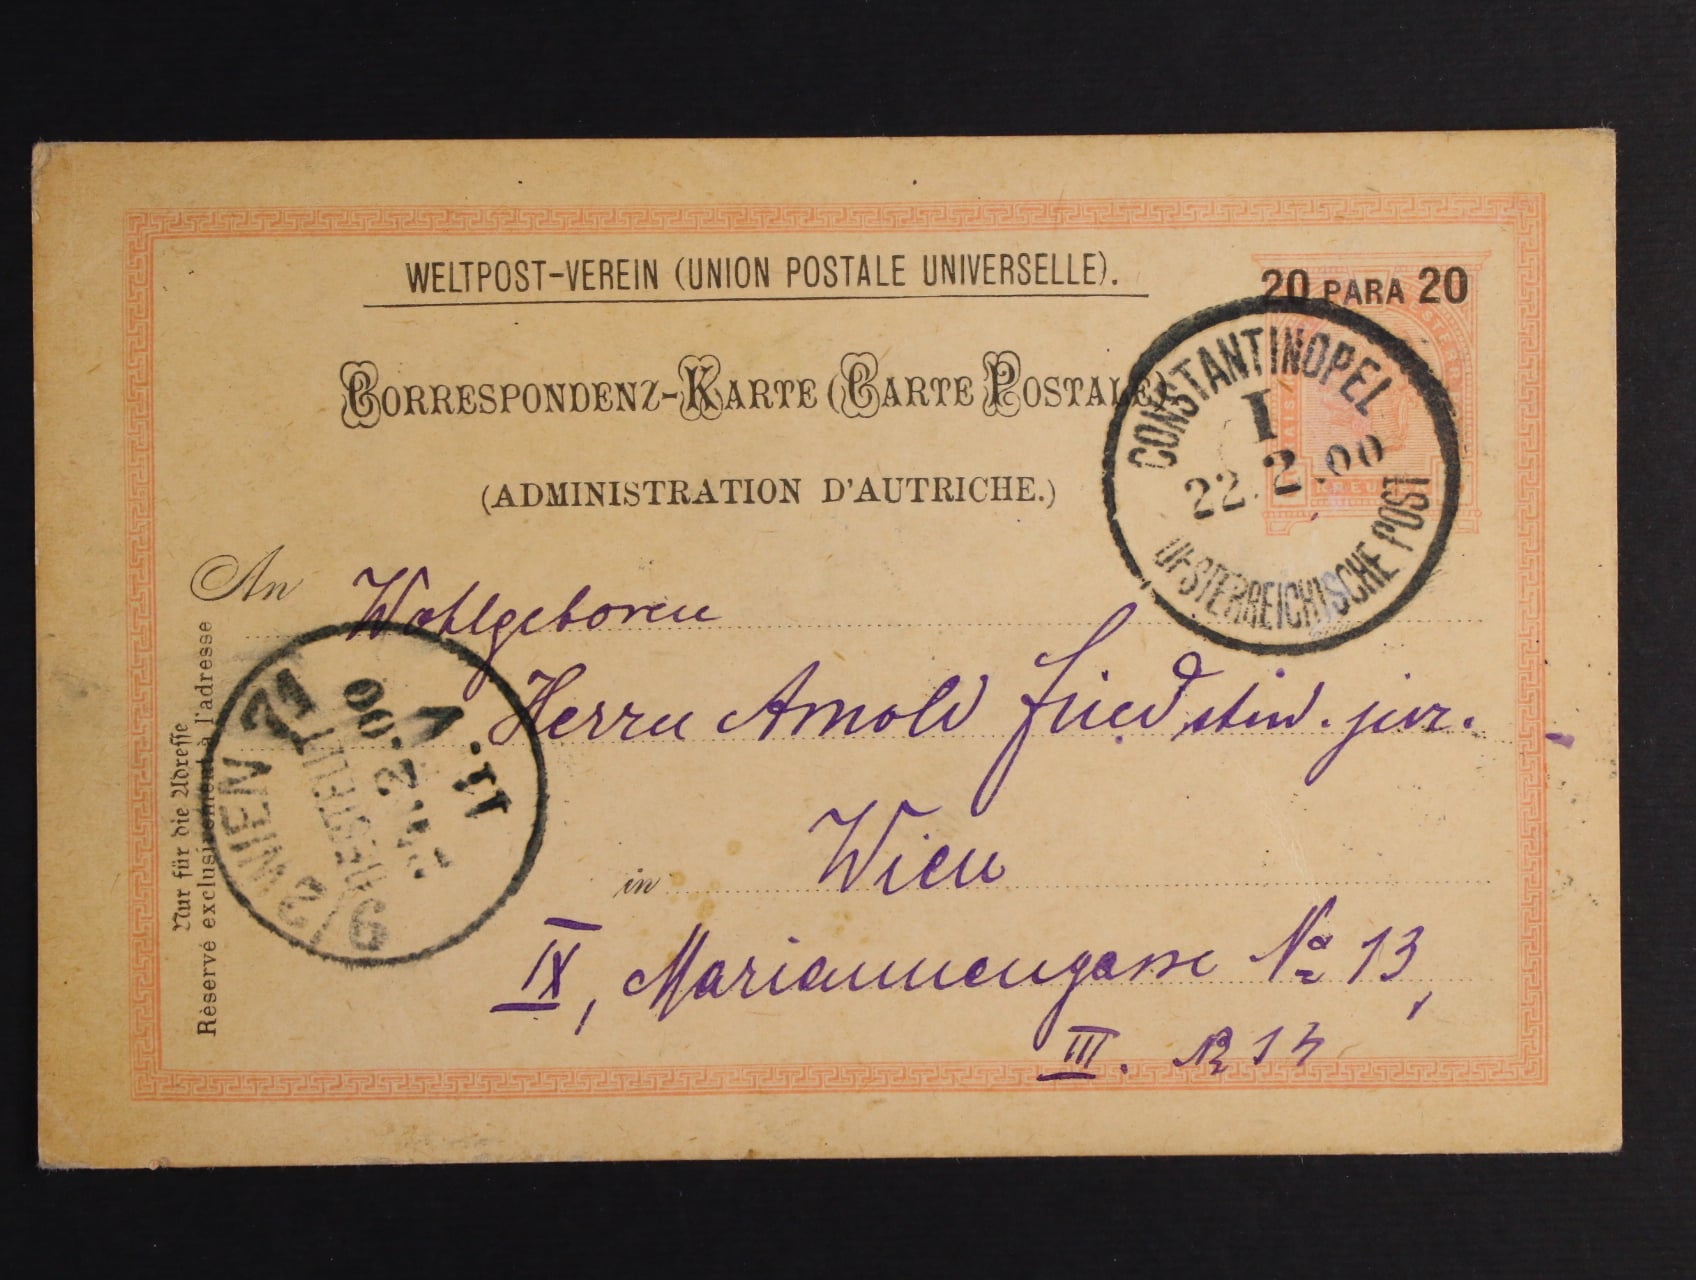 WELTPOST-VEREIN (UNION POSTALE UNIVERSELLE).
20 PARA 20
CORRESPONDENZ-KARTE (CARTE POSTALE)
(ADMINISTRATION D'AUTRICHE.)
CONSTANTINOPEL
I
22.2.00
OESTERREICHISCHE POST
KREUZER
An Wohlgeboren
Herrn Arnold Friedstein jun.
in Wien
IX, Mariannengasse No 13,
III. No 14
Nur für die Adresse
Réservé exclusivement à l'adresse
9/2 WIEN 71
BESTELLT
2.00